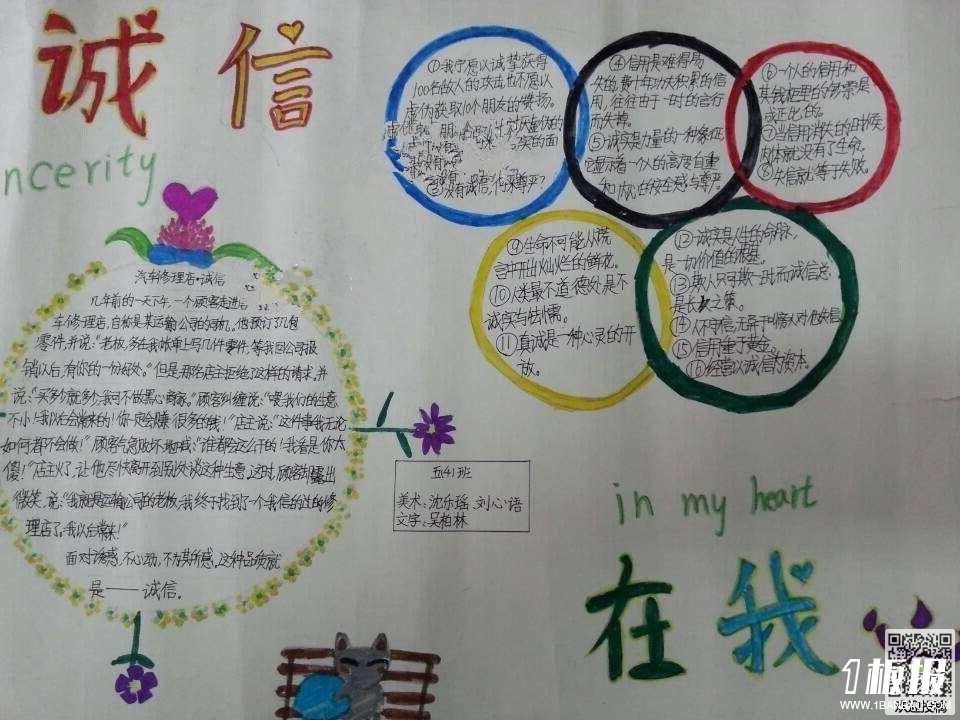 诚信
ncerity
①我宁愿以诚挚获得
100名敌人的攻击也不愿以
虚伪获取10个朋友的赞扬。
③没有诚信,何来尊严?
④信用是难得易
失的费十年功夫积累的信
用,往往由于一时的言行
而失掉。
⑤诚实是力量的一种象征,
它显示着一个人的高度自重
和内心的安全感与尊严。
⑥一个人的信用和
其钱柜里的钞票是
成正比的。
⑦当信用消失的时候,
肉体就没有了生命。
⑧失信就等于失败。
⑨生命不可能从谎
言中开出灿烂的鲜花。
⑩人类最不道德处是不
诚实与怯懦。
⑪真诚是一种心灵的开
放。
⑫诚实是人生的命脉,
是一切价值的根基。
⑬欺人只可欺一时而诚信总
是长久之策。
⑮信用重于黄金。
⑯经营以诚信为资本。
汽车修理店·诚信
几年前的一天下午,一个顾客走进
车修理店,自称是某运输公司的司机。他预订了几包
零件,并说:“老板,多在我帐单上写几件零件,等我回公司报
销以后,有你的一份好处。”但是,那名店主拒绝了这样的请求,并
说:“买多少就多少,我可不做黑心商家。”顾客纠缠说:“喂我们的生意
不小!我以后会常来的!你一定会赚很多的钱!”店主说:“这件事我无论
如何都不会做!”顾客气急败坏地喊:“谁都会这么干的!我看是你太
傻!”店主火了,让他尽快离开到别处谈这种生意,这时,顾客却露出
微笑,说:“我就是运输公司的老板,我终于找到了一个我信的过的修
理店了,我以后常来!”
面对诱惑,不心动,不为其所惑,这种品质就
是——诚信。
五41班
美术:沈乐瑶、刘心语
文字:吴柏林
in my heart
在我
1板报
WWW.1BANBAO.COM
欢迎投稿